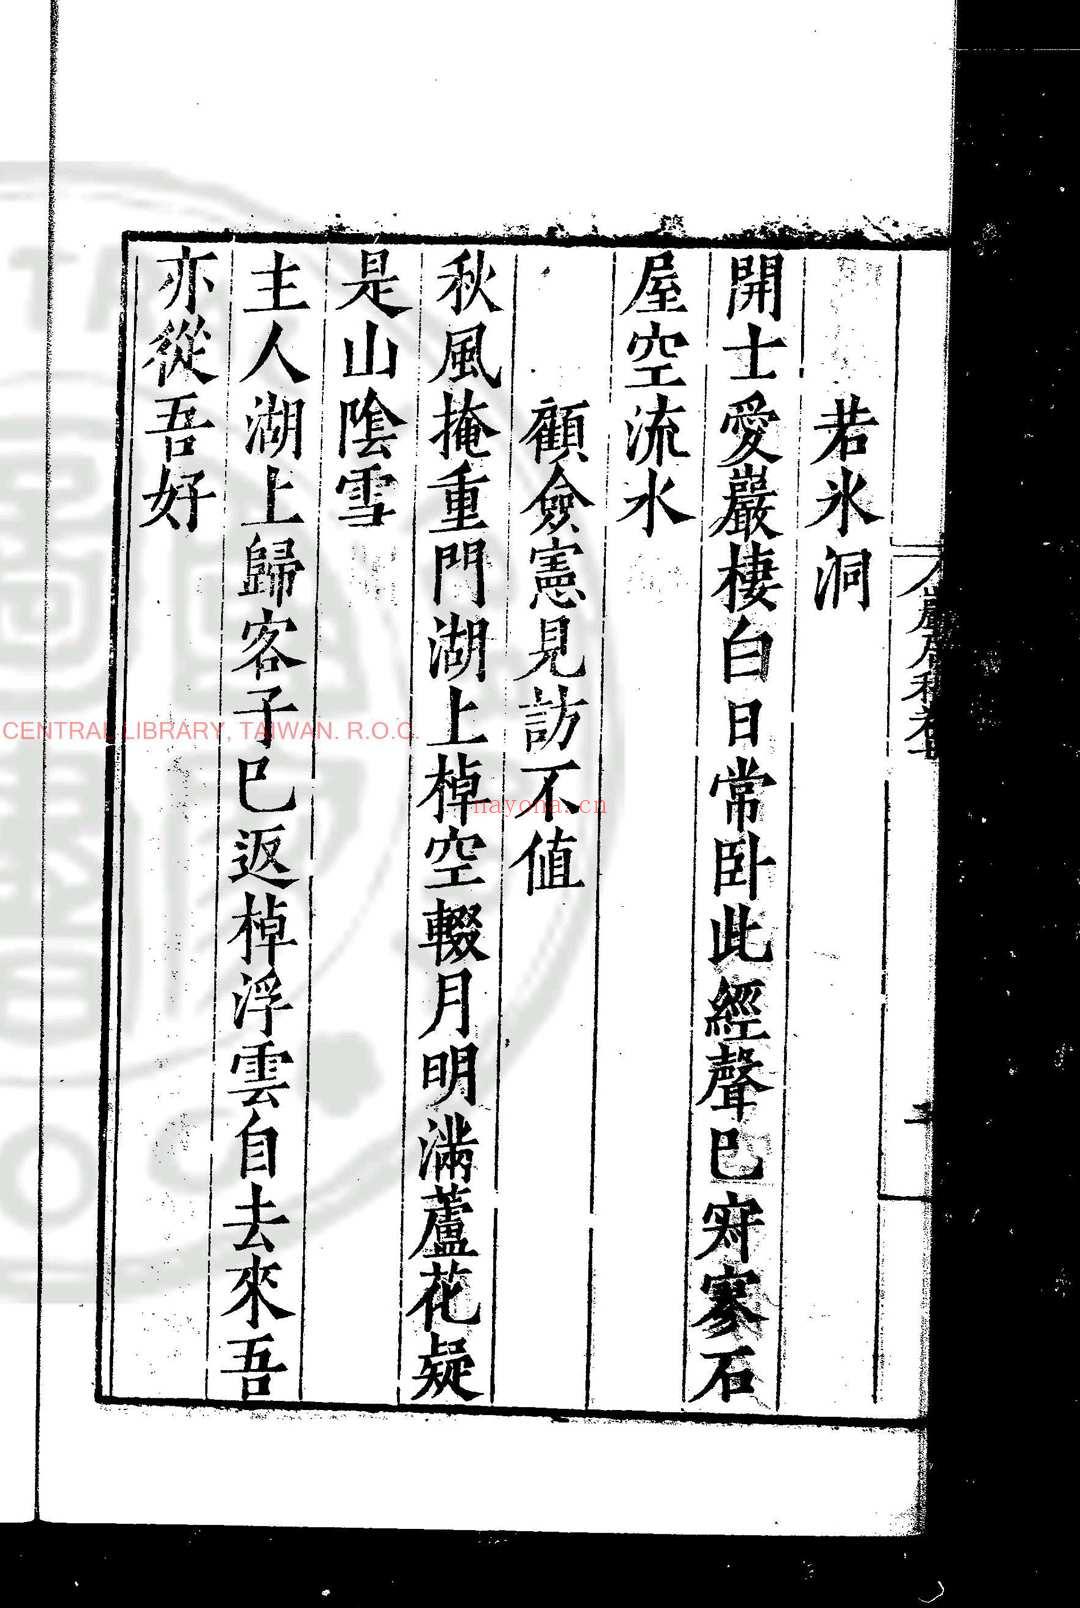 若氷洞
開士愛巖棲白日常卧此經聲巳寂寥石
屋空流水
顧僉憲見訪不值
秋風掩重門湖上棹空輟月明滿蘆花疑
是山陰雪
主人湖上歸客子巳返棹浮雲自去來吾
亦從吾好
CENTRAL LIBRARY, TAIWAN. R.O.C.
nayona.cn